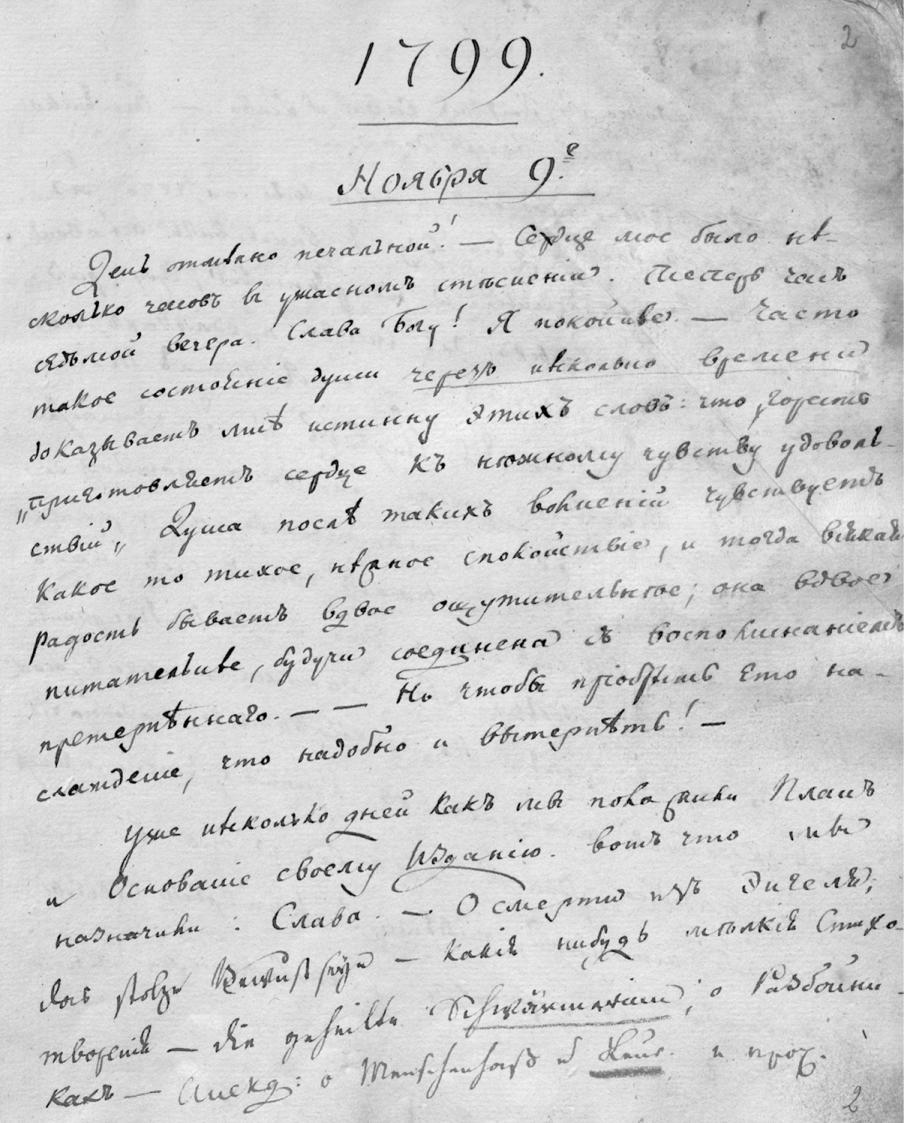 2
1799.
Ноября 9.е
День отмѣнно печальной! — Сердце мое было нѣ-
сколько часовъ въ ужасномъ стѣсненіи. Теперь часъ
седьмой вечера. Слава Богу! Я покойнѣе. — Часто
такое состояніе души черезъ нѣсколько времени
доказываетъ мнѣ истинну этихъ словъ: что „горесть
„приготовляетъ сердце къ нѣжному чувству удоволь-
ствій„ Душа послѣ такихъ волненій чувствуетъ
какое то тихое, нѣрное спокойствіе, и тогда всякая
радость бываетъ вдвое ощутительнѣе; она вдвое
питательнѣе, будучи соединена съ воспоминаніемъ
претерпѣннаго. — — Но чтобы пріобрѣсть ето на-
слажденіе, что надобно и вытерпѣть! —
Уже нѣсколько дней какъ мы положили Планъ
и Основаніе своему Изданію. вотъ что мы
назначили: Слава. — О смерти изъ Энгеля;
das stolze Bewußtseyn — какія нибудь мѣлкія Стихо-
творенія — die geheilte Schwärmerinn; о Разбойни-
кахъ — Анекд: о Menschenhaß u Reue. и проч.
2